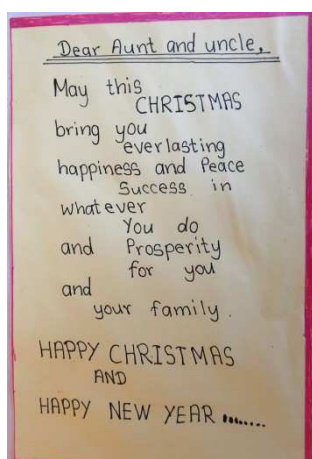 Dear Aunt and uncle,
May this
CHRISTMAS
bring you
everlasting
happiness and Peace
Success in
whatever
You do
and Prosperity
for you
and
your family.
HAPPY CHRISTMAS
AND
HAPPY NEW YEAR ........